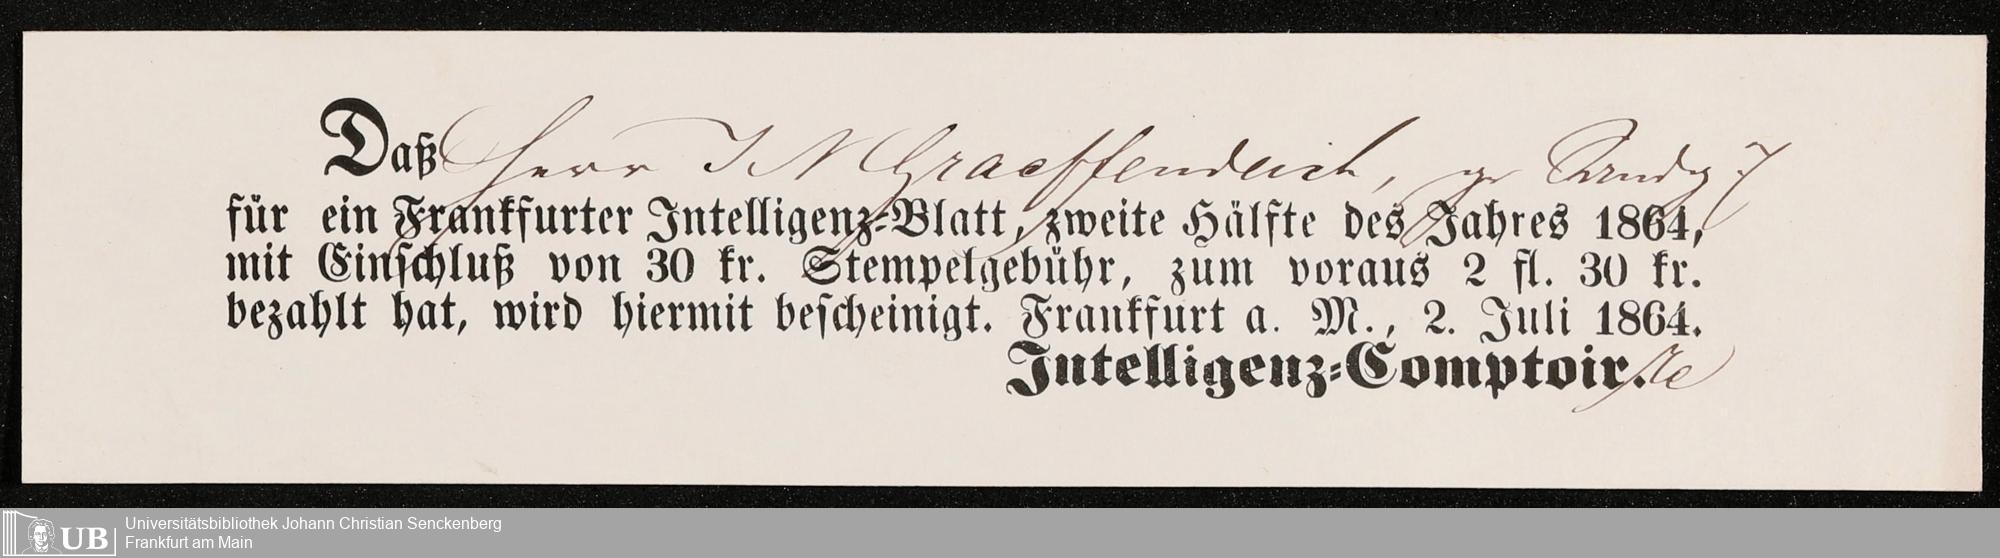 Daß Herr J N Graeffendeich,
für ein Frankfurter Intelligenz-Blatt, zweite Hälfte des Jahres 1864,
mit Einschluß von 30 kr. Stempelgebühr, zum voraus 2 fl. 30 kr.
bezahlt hat, wird hiermit bescheinigt. Frankfurt a. M., 2. Juli 1864.
Intelligenz-Comptoir.
Universitätsbibliothek Johann Christian Senckenberg
UB Frankfurt am Main